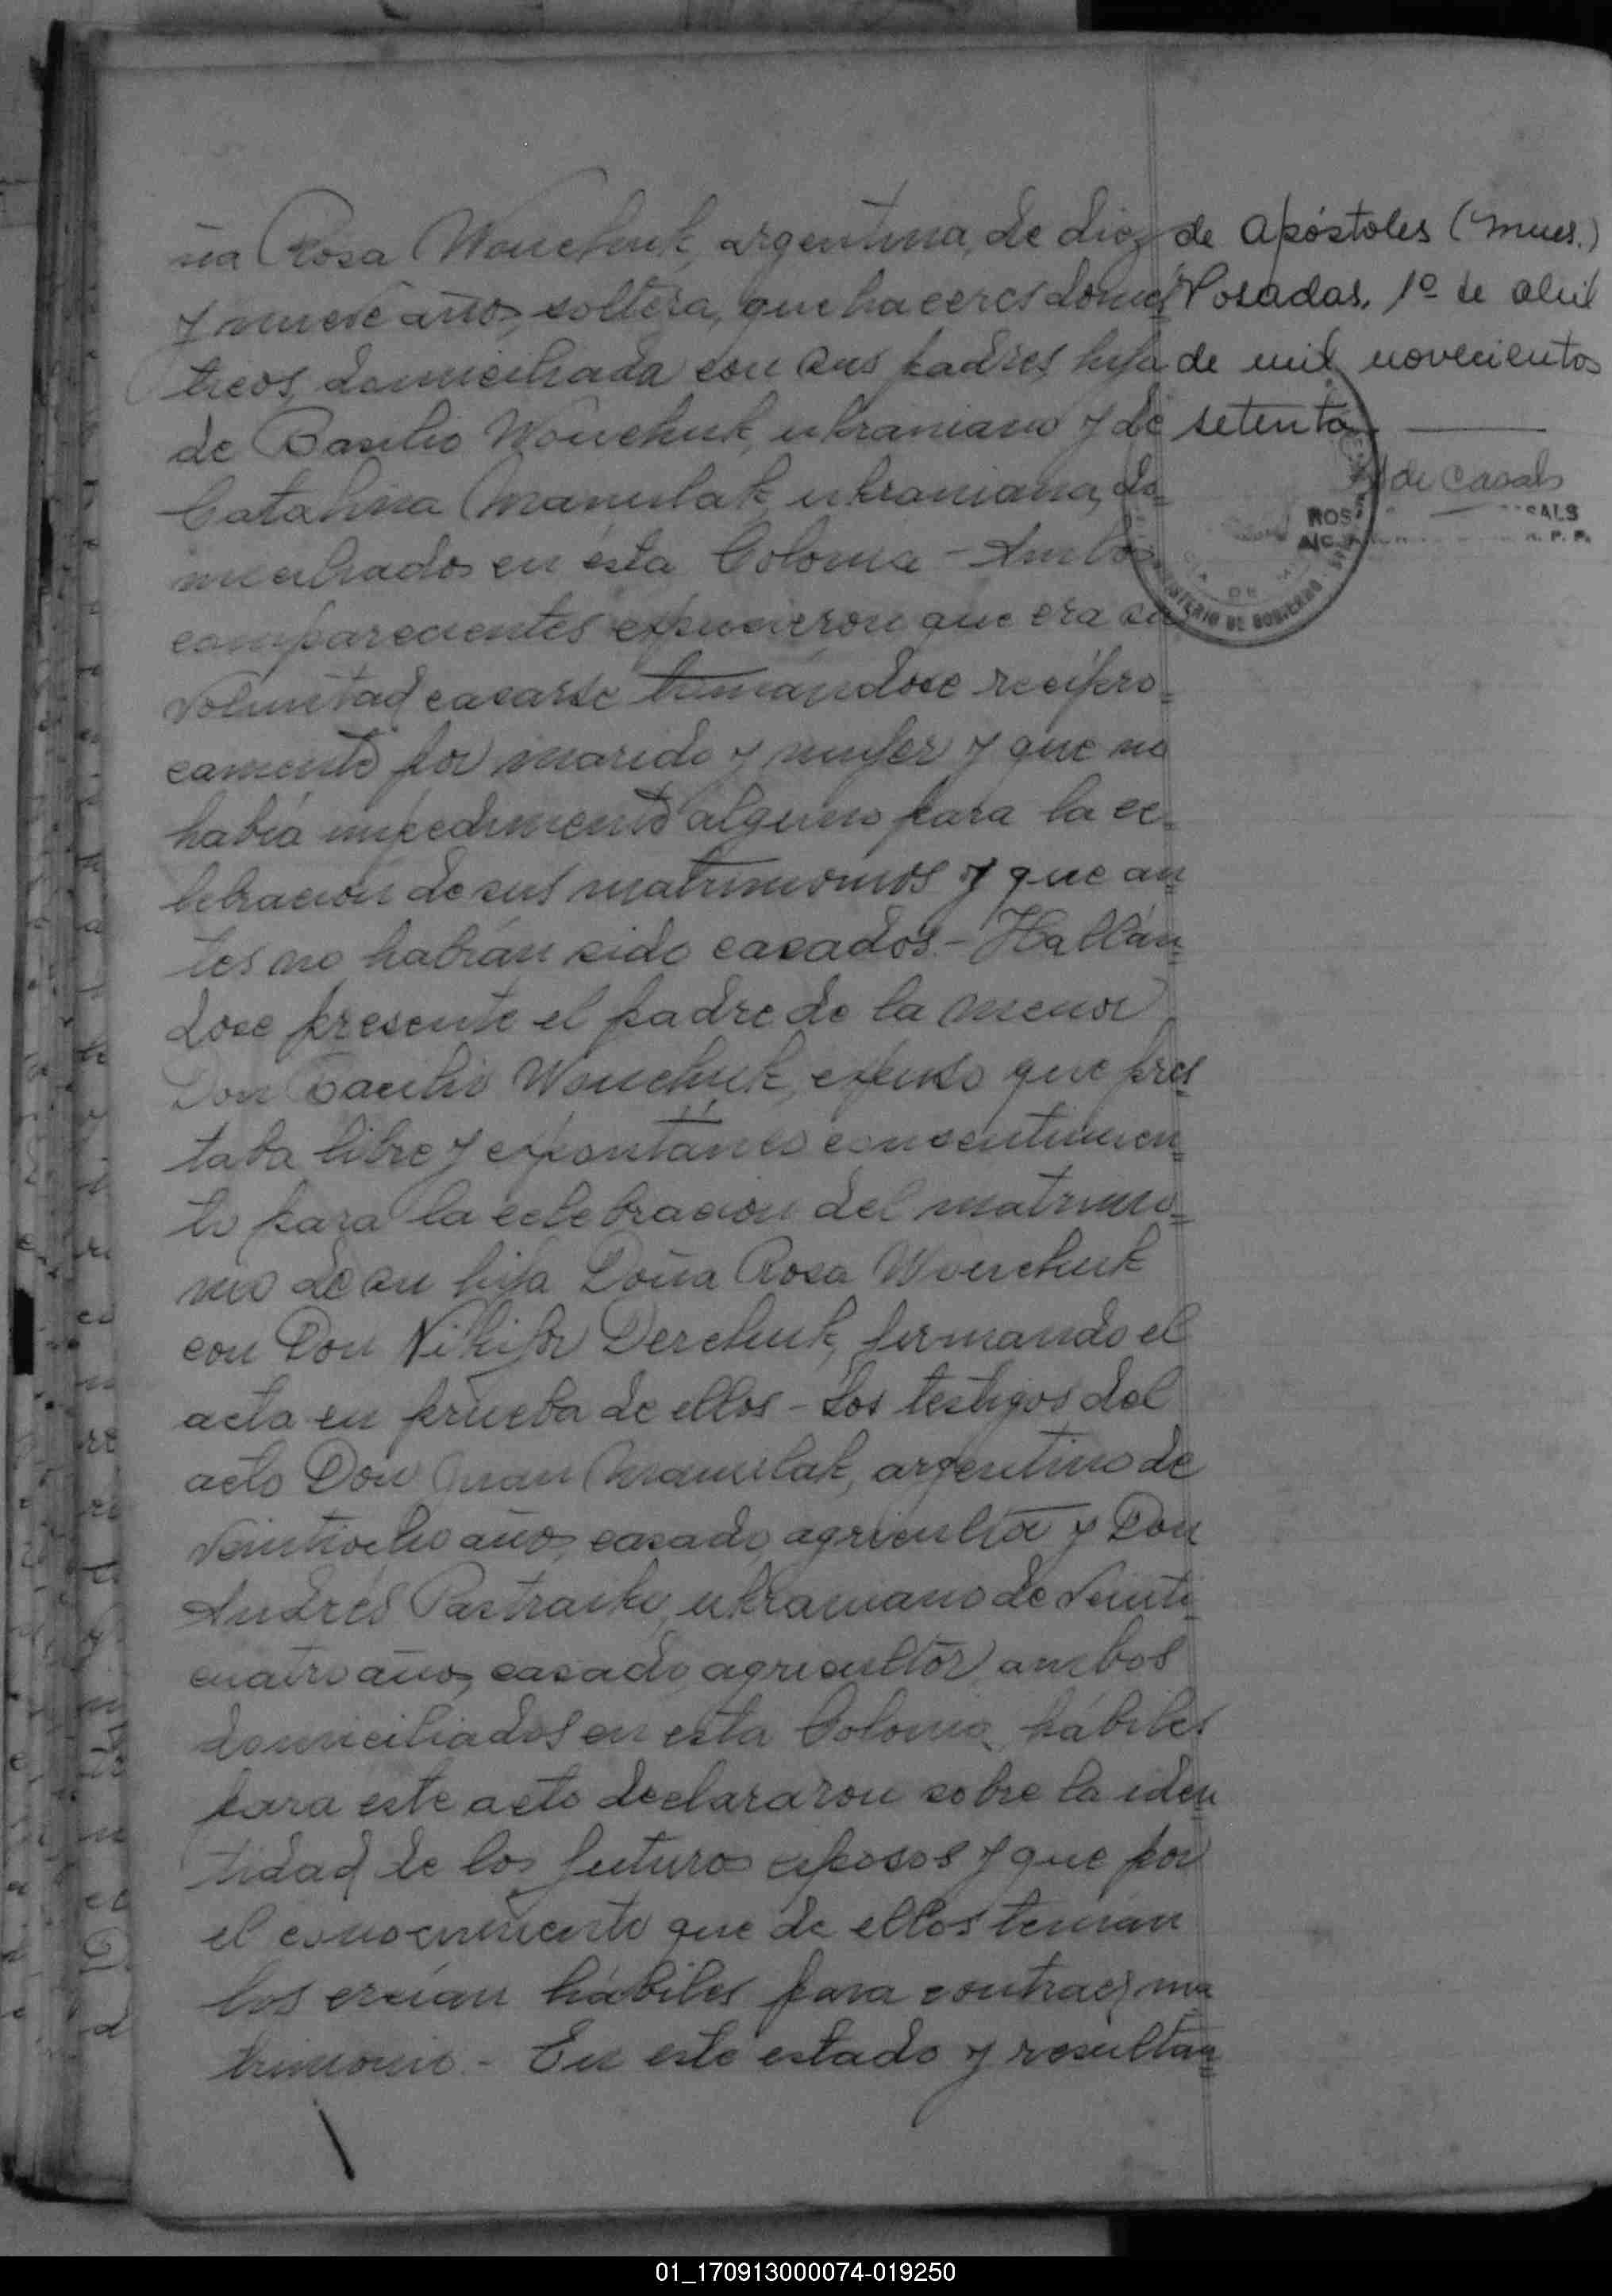 ña Rosa Wonchuk, argentina, de diez
y nueve años, soltera, quehaceres domés
ticos, domiciliada con sus padres, hija
de Basilio Wonchuk, ukraniano y de
Catalina Manulak, ukraniana, do=
miciliados en ésta Colonia - Ambos
comparecientes expusieron que era su
voluntad casarse tomándose recipro=
camente por marido y mujer y que no
había impedimento alguno para la ce=
lebración de sus matrimonios y que an=
tes no habían sido casados.- Hallán=
dose presente el padre de la menor
Don Basilio Wonchuk, expuso que pres
taba libre y expontáneo consentimien=
to para la celebración del matrimo=
nio de su hija Doña Rosa Wonchuk
con Don Nikifor Derchuk, firmando el
acta en prueba de ellos - Los testigos del
acto Don Juan Manulak, argentino de
veintiocho años, casado, agricultor y Don
Andrés ukraniano de veinti
cuatro años, casado, agricultor, ambos
domiciliados en esta Colonia, hábiles
para este acto declararon sobre la iden
tidad de los futuros esposos y que por
el conocimiento que de ellos tenían
los creían hábiles para contraer ma
trimonio.- En este estado y resultan
de Apóstoles (Mnes.)
Posadas, 1º de abril
de mil novecientos
setenta
de Casals
ROS
MINISTERIO DE GOBIERNO
01_170913000074-019250